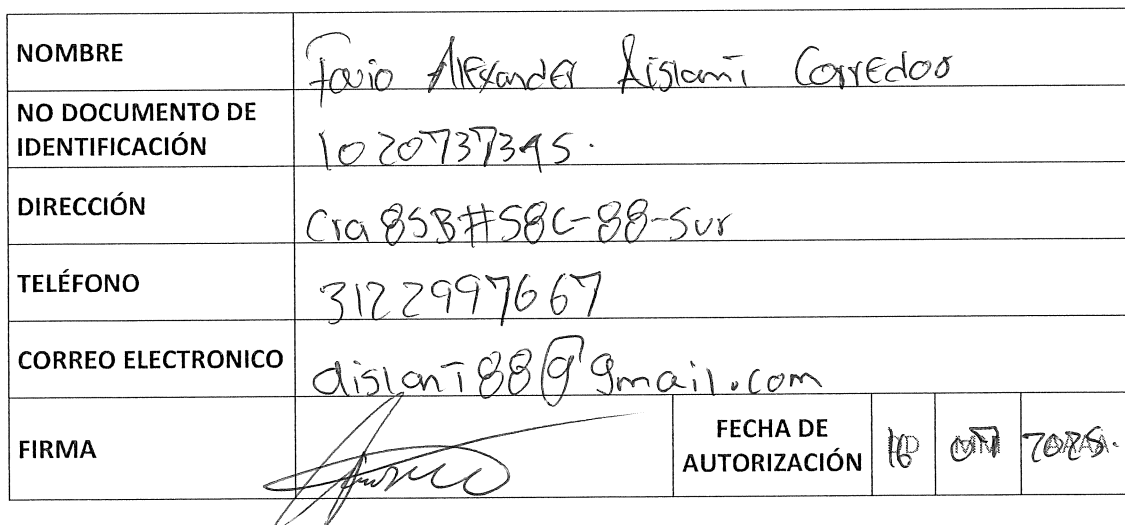 NOMBRE
Favio Alexander Aislant Corredor
NO DOCUMENTO DE
IDENTIFICACIÓN
1020737395.
DIRECCIÓN
Cra 85B#58C-88-Sur
TELÉFONO
3122997667
CORREO ELECTRONICO
aislant88@gmail.com
FIRMA
FECHA DE
AUTORIZACIÓN
16 07 2025.